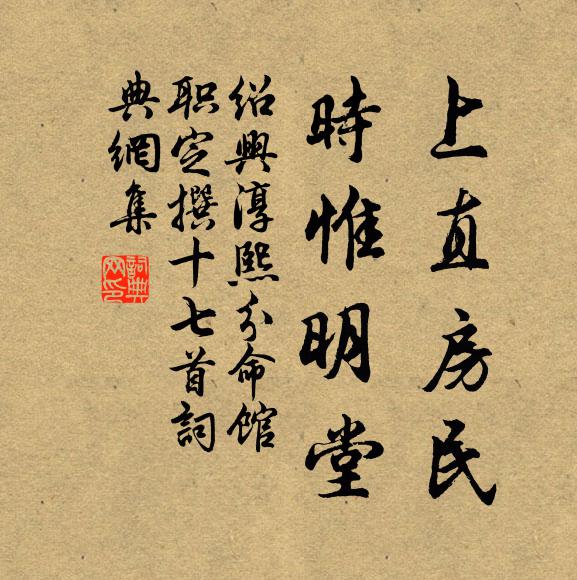 上直房民
時惟明堂
紹興淳熙分命館
职定撰十七首詞
典網集
詞典网印